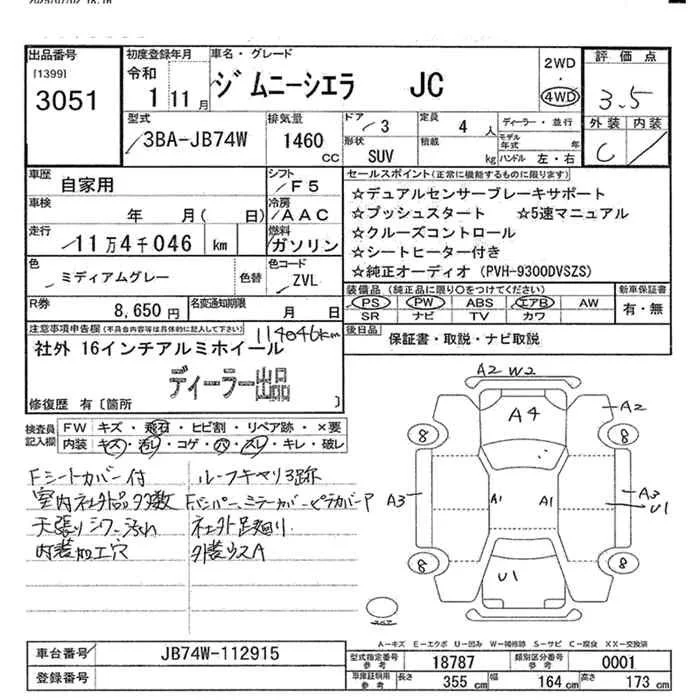 2025/07/02 18:16
出品番号
[1399]
3051
初度登録年月
令和
1 11月
車名・グレード
ジムニーシエラ JC
2WD
・
4WD
評価点
3.5
外装 内装
C
型式
3BA-JB74W
排気量
1460
CC
ドア
3
形状
SUV
定員
4 人
積載
kg
ディーラー・並行
モデル
年式 年
ハンドル 左・右
車歴
自家用
シフト
F5
車検
年 月( 日)
冷房
AAC
走行
11万4千046 km
燃料
ガソリン
色
ミディアムグレー
色替
色コード
ZVL
R券
8,650円
名変通知期限
月 日
セールスポイント(正常に機能するものに限ります)
☆デュアルセンサーブレーキサポート
☆プッシュスタート ☆5速マニュアル
☆クルーズコントロール
☆シートヒーター付き
☆純正オーディオ(PVH-9300DVSZS)
装備品(純正品に限り○をつけてください)
PS PW ABS エアB AW
SR ナビ TV カワ
新車保証書
有・無
後日品
保証書・取説・ナビ取説
注意事項申告欄(不具合内容等は具体的に記入して下さい)
114046km
社外 16インチアルミホイール
ディーラー出品
修復歴 有〔箇所 〕
検査員
記入欄
FW キズ・飛石・ヒビ割・リペア跡・×要
内装 キズ・汚レ・コゲ・穴・スレ・キレ・破レ
Fシートカバー付
室内社外品多数
天張りシワ、汚れ
内装加工穴
ルーフキャリア跡
社外足廻り
外装ウスA
A2 W2
A4
A2
8
8
A3
A1
A1
A3
U1
8
8
U1
スペア
A－キズ E－エクボ U－凹み W－補修跡 S－サビ C－腐食 XX－交換済
車台番号
JB74W-112915
登録番号
型式指定番号
参考
18787
類別区分番号
参考
0001
車庫証明用
参考
長さ
355 cm
幅
164 cm
高さ
173 cm